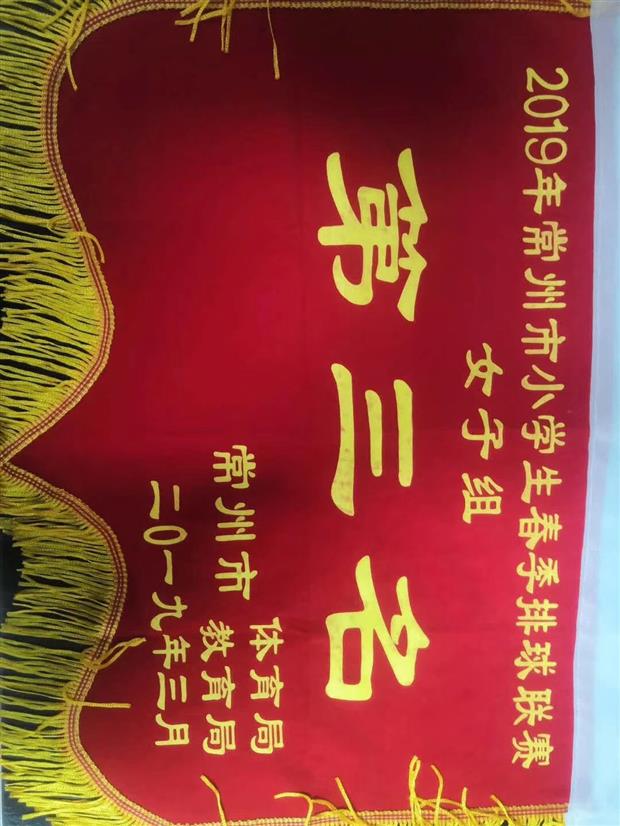 2019年常州市小学生春季排球联赛
女子组
第三名
常州市 体育局
教育局
二〇一九年三月